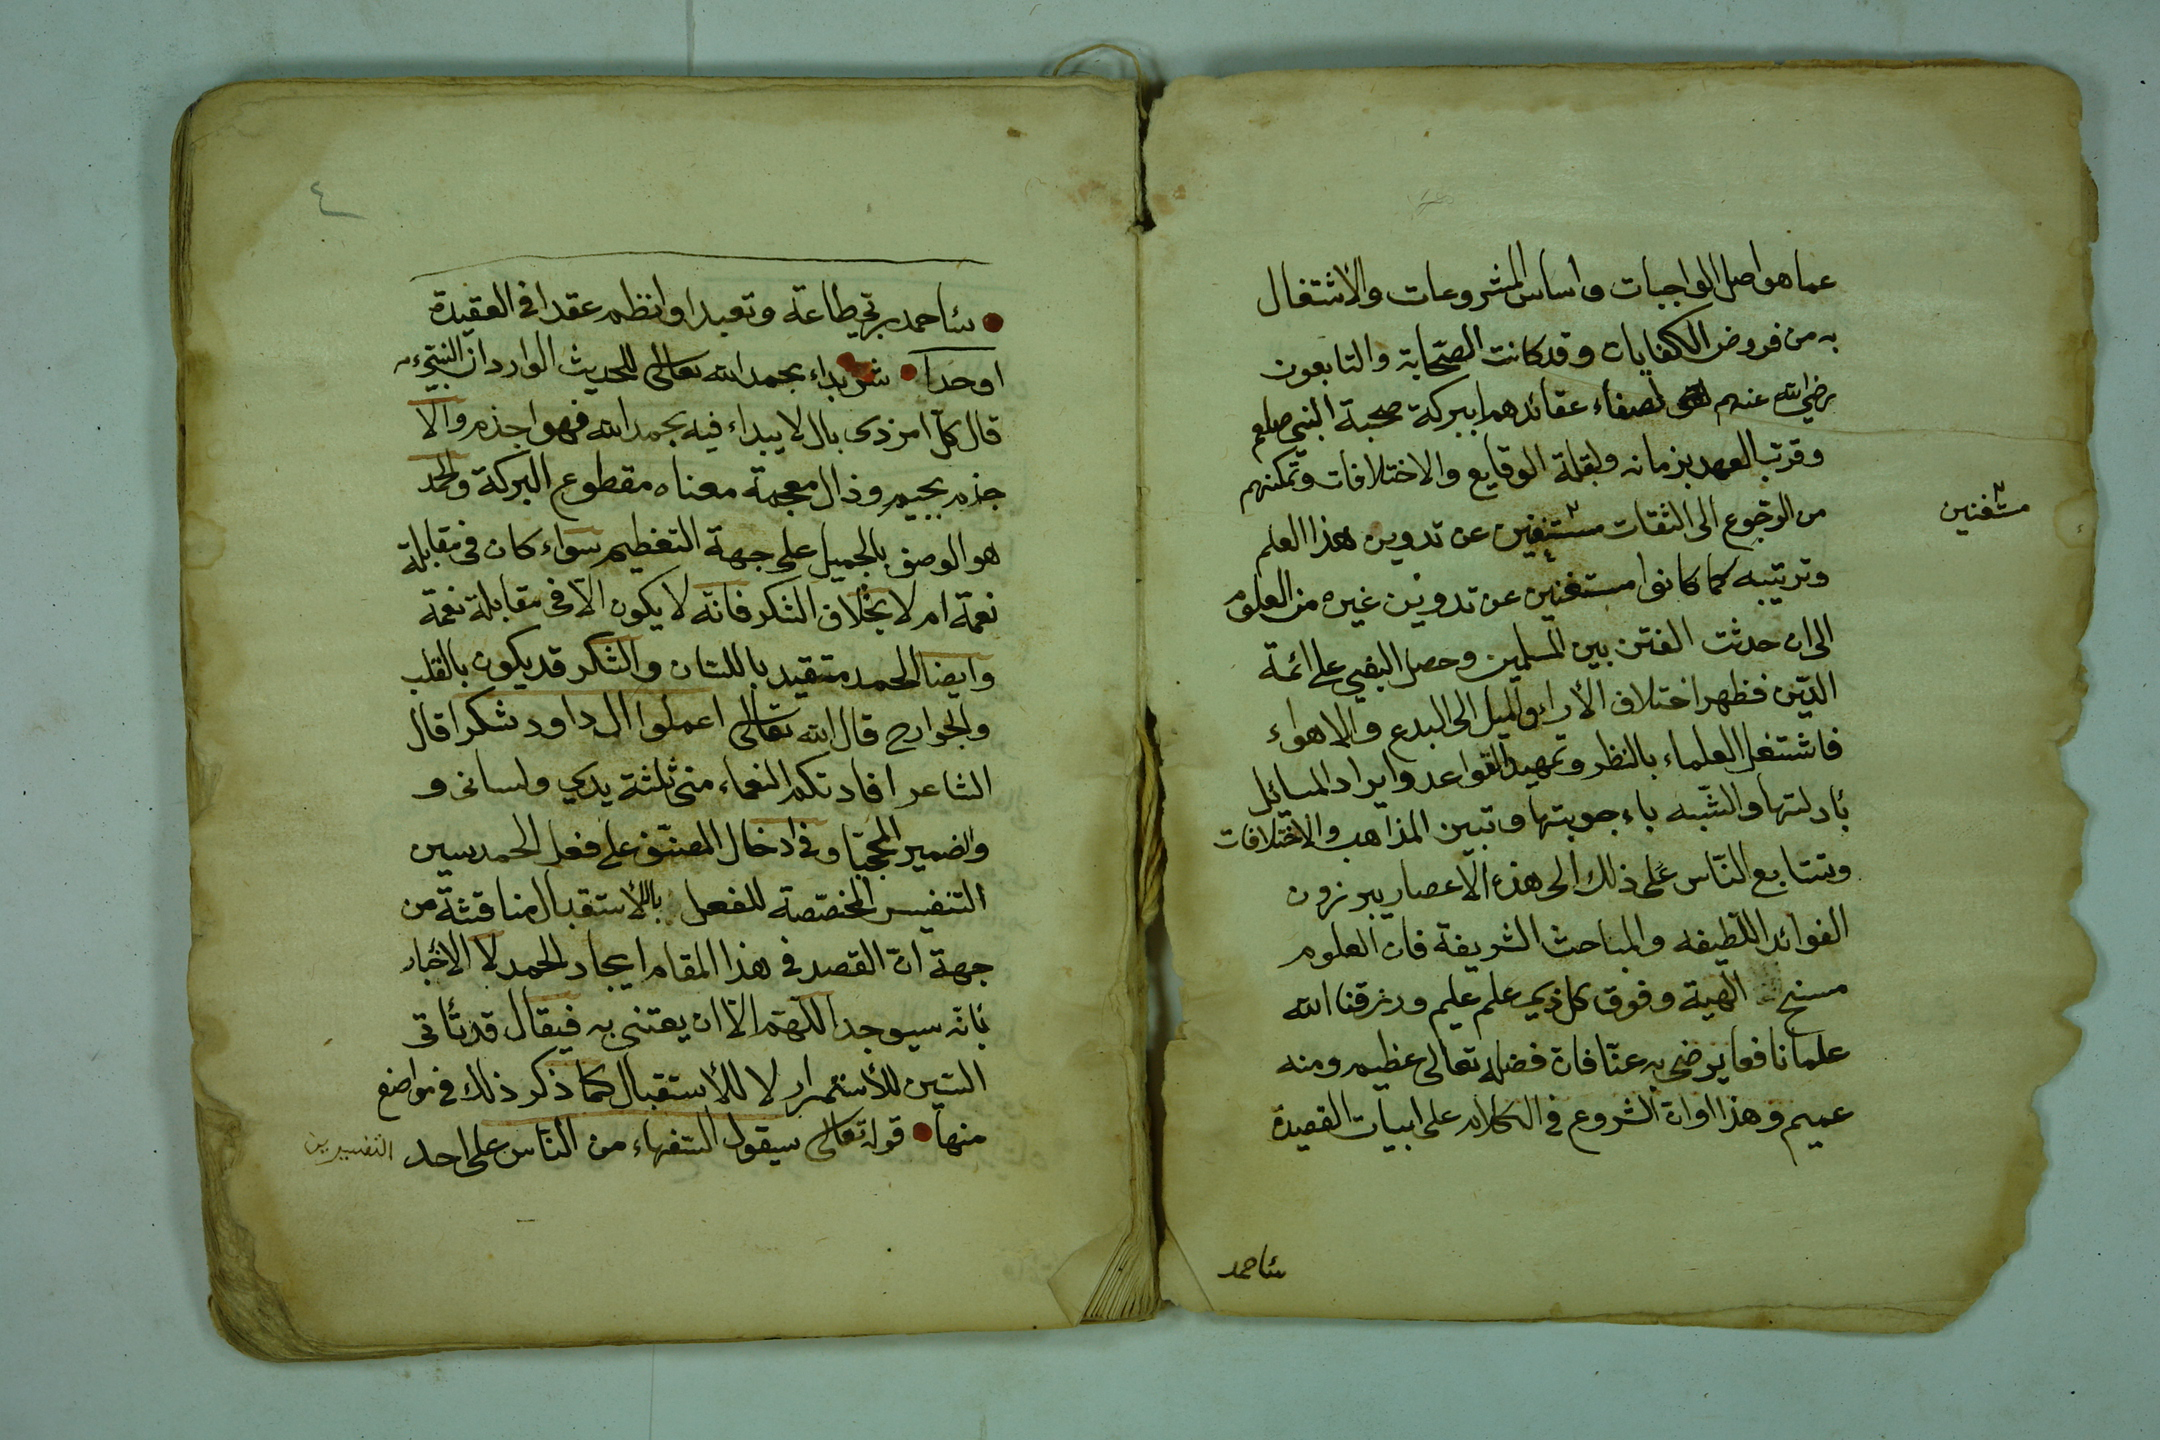 عما هو اصل الواجبات واساس المشروعات والاشتغال
به من فروض الكفايات وقد كانت الصحابة والتابعون
رضي الله عنهم لصفاء عقائدهم ببركة صحبة النبي صلعم
وقرب العهد بزمانه ولقلة الوقايع والاختلافات وتمكنهم
من الرجوع الى الثقات مستغنين عن تدوين هذا العلم
مستغنين
وترتيبه كما كانوا مستغنين عن تدوين غيره من العلوم
الى ان حدثت الفتن بين المسلمين وحصل البغي على ائمة
الدين فظهر اختلاف الأراء والميل الى البدع والاهواء
فاشتغل العلماء بالنظر وتمهيد القواعد وايراد المسائل
بأدلتها والشبه باءجوبتها وتبين المذاهب والاختلافات
وتتابع الناس على ذلك الى هذه الاعصار يبرزون
الفوائد اللطيفه والمباحث الشريفة فان العلوم
منح الهية وفوق كل ذي علم عليم ورزقنا الله
علما نافعا يرضى به عنا فان فضله تعالى عظيم ومنه
عميم وهذا اوان الشروع في الكلام على ابيات القصيدة
سأحمد
٤
سأحمد ربي طاعة وتعبدا وانظم عقدا في العقيدة
اوحدا ش بداء بحمد الله تعالى للحديث الوارد ان النبي
قال كل امر ذي بال لا يبداء فيه بحمد الله فهو اجذم والا
جذم بجيم وذال معجمة معناه مقطوع البركة والحمد
هو الوصف بالجميل على جهة التعظيم سواء كان في مقابلة
نعمة ام لا بخلاف الشكر فانه لا يكون الا في مقابلة نعمة
وايضا الحمد متقيد باللسان والشكر قد يكون بالقلب
والجوارح قال الله تعالى اعملوا ال داود شكرا قال
الشاعر افادتكم النعماء مني ثلثة يدي ولساني و
والضمير المحجبا وفي ادخال المصنف على فعل الحمد سين
التنفيس المخصصة للفعل بالاستقبال مناقشة من
جهة ان القصد في هذا المقام ايجاد الحمد لا الاخبار
بأنه سيوجد اللهم الا ان يعتنى به فيقال قد تأتي
السين للأستمرار لا للأستقبال كما ذكر ذلك في مواضع
منها قوله تعالى سيقول السفهاء من الناس على احد
التفسيرين